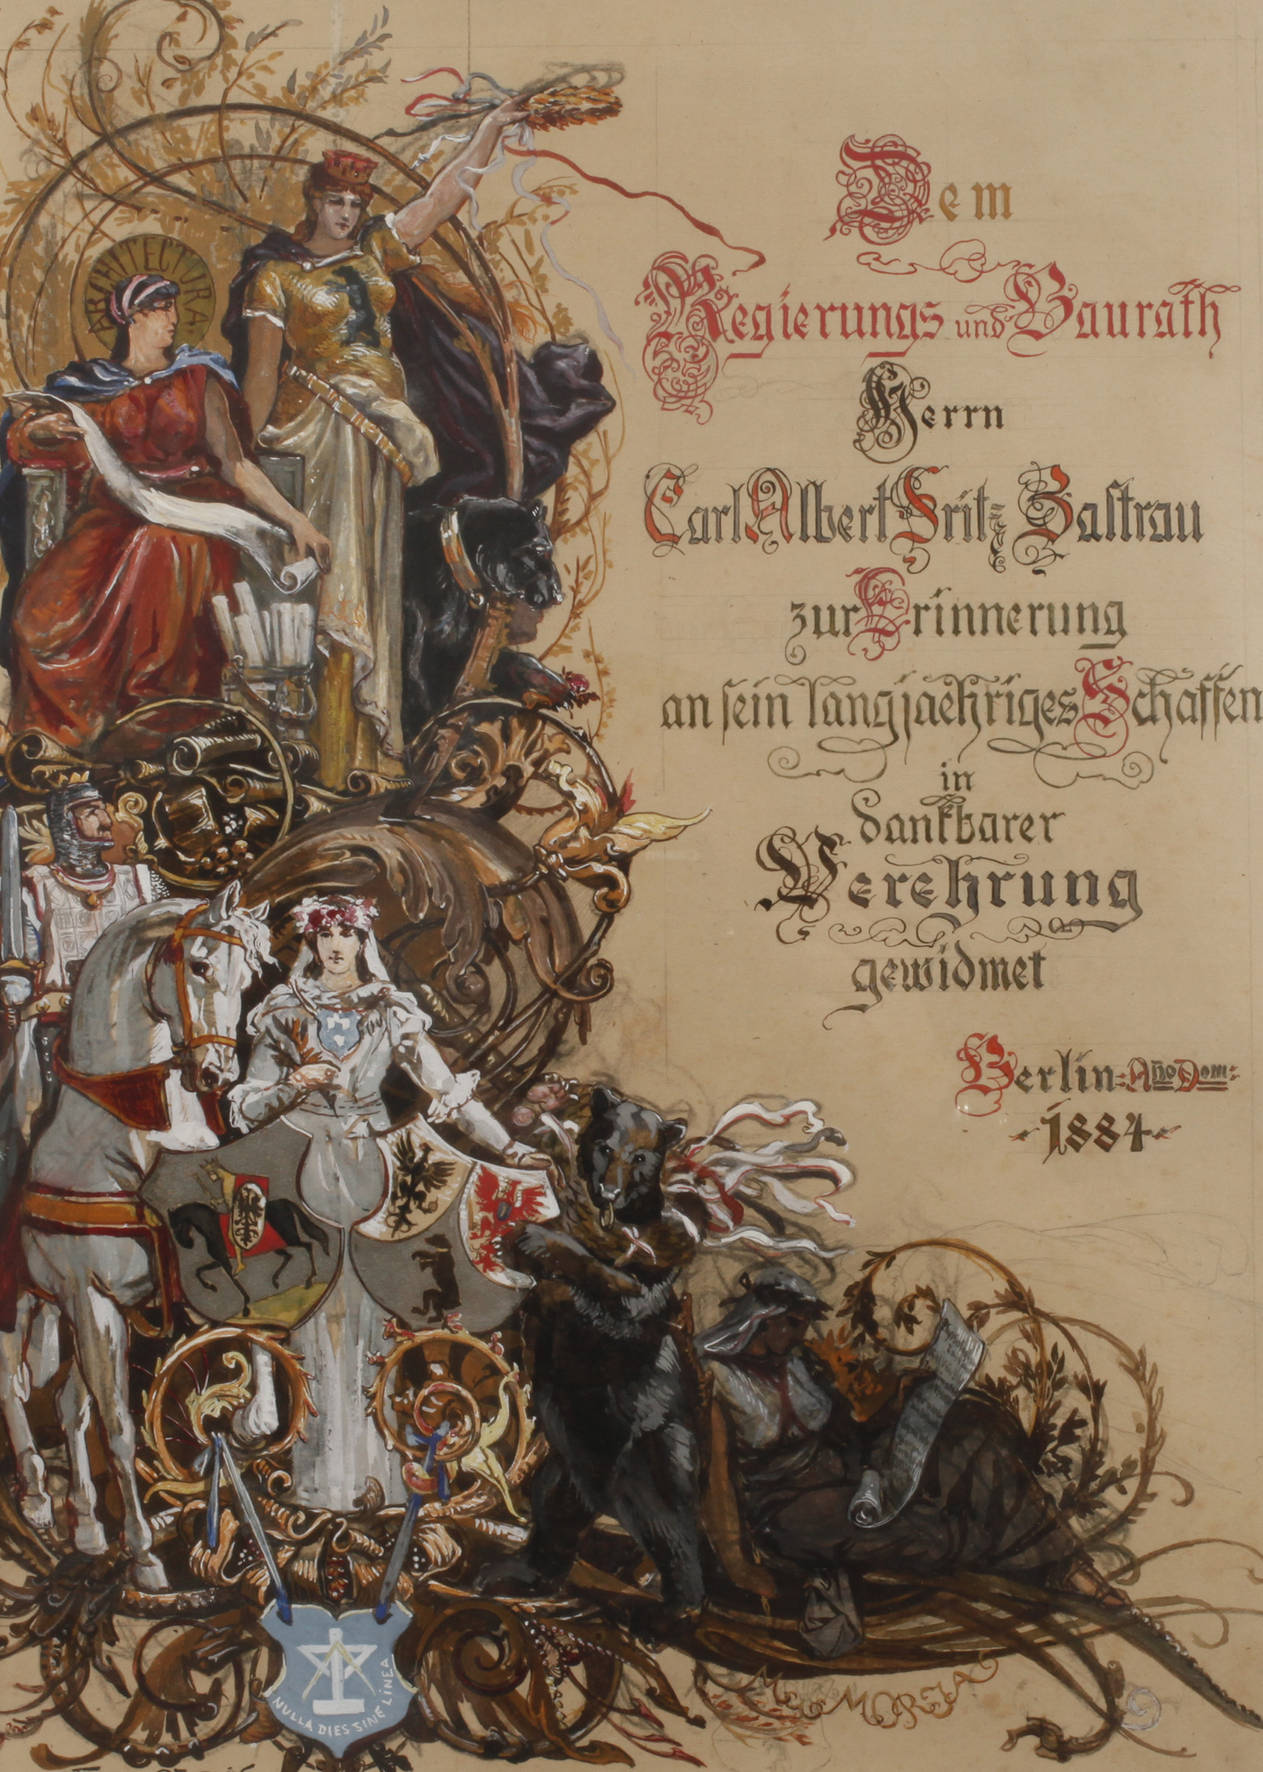 ARCHITECTURA
Dem
Regierungs und Baurath
Herrn
Carl Albert Fritz Zastrau
zur Erinnerung
an sein langjaehriges Schaffen
in
dankbarer
Verehrung
gewidmet
Berlin: Año Dom:
1884
NULLA DIES SINE LINEA
MEMORIA